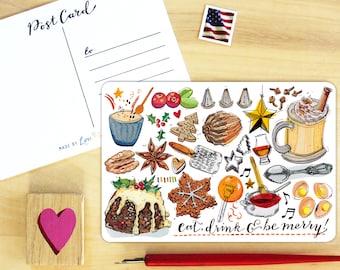 Post Card
to
MADE BY
eat, drink & be merry